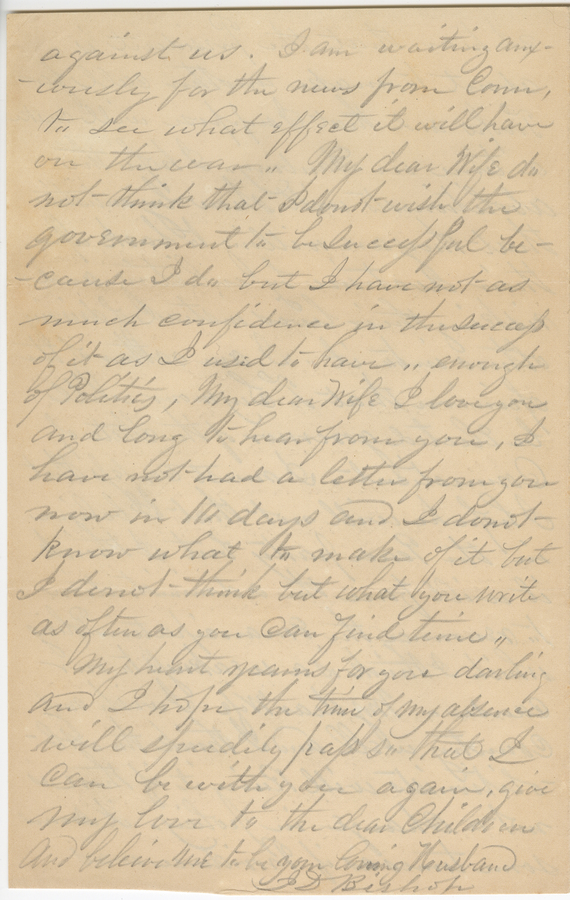 against us. I am waiting anx-
-iously for the news from Conn,
to see what effect it will have
on the war,, My dear Wife do
not think that I donot wish the
government to be successful be-
-cause I do but I have not as
much confidence in the success
of it as I used to have ,, enough
of Politics, My dear Wife I love you
and long to hear from you, I
have not had a letter from you
now in 10 days and I donot
know what to make of it but
I donot think but what you write
as often as you can find time ,,
My heart yearns for you darling
and I hope the time of my absence
will speedily pass so that I
can be with you again, give
my love to the dear Children
And believe me to be your loving Husband
Bishop